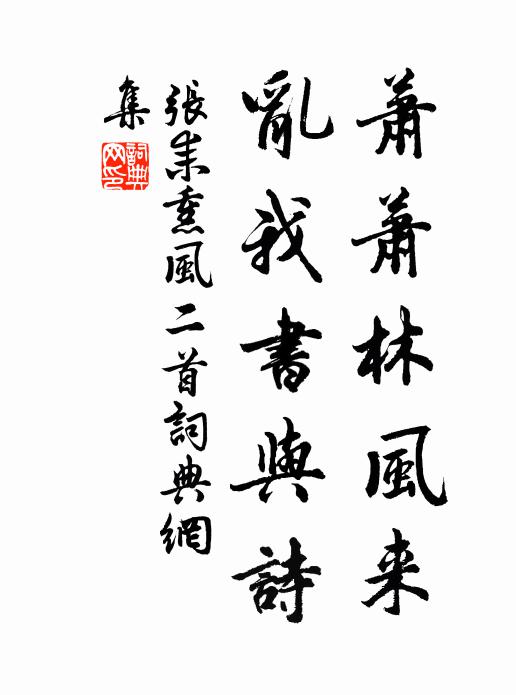 蕭蕭林風来
亂我書與詩
張耒熏風二首詞典網
集
詞典
网印